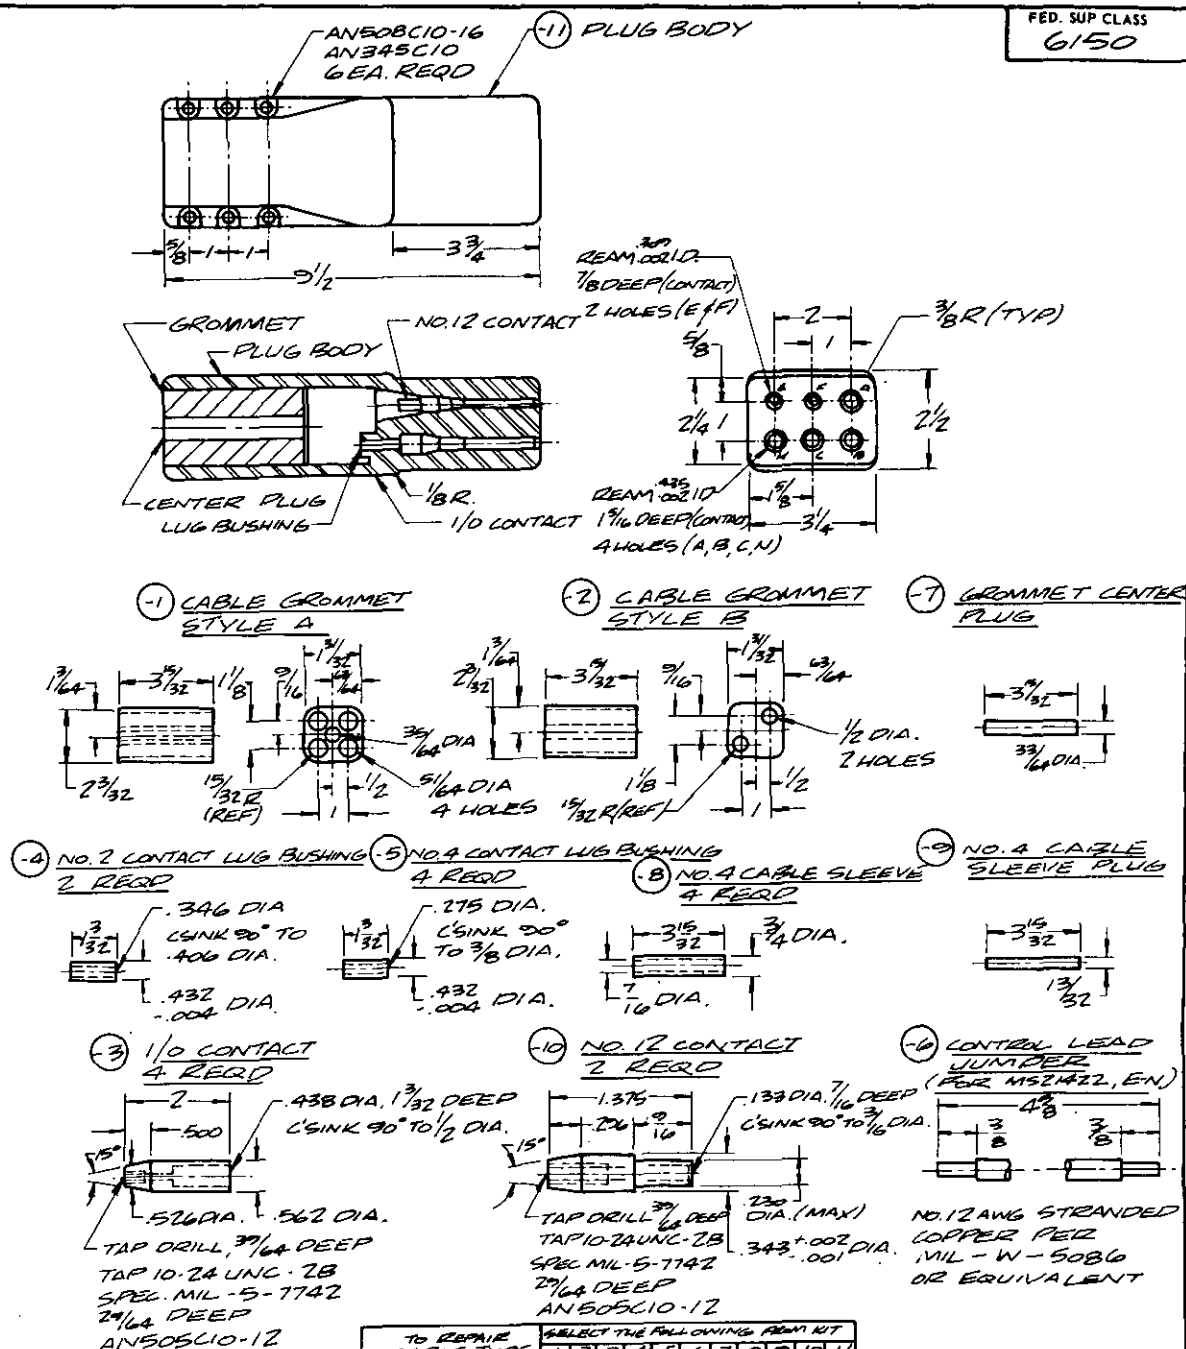 FED. SUP CLASS
6150
AN508C10-16
AN345C10
6 EA. REQD
-11 PLUG BODY
5/8 1 1
3 3/4
9 1/2
GROMMET
PLUG BODY
NO.12 CONTACT
CENTER PLUG
LUG BUSHING
1/8 R.
1/0 CONTACT
REAM .002 I.D.
7/8 DEEP (CONTACT)
2 HOLES (E & F)
5/8
2
1
3/8 R (TYP)
2 1/4
1
2 1/2
REAM .435 .002 ID
1 5/16 DEEP (CONTACT)
4 HOLES (A, B, C, N)
1 5/8
3 1/4
-1 CABLE GROMMET
STYLE A
1 3/64
3 15/32
1 1/8
9/16
1 31/32
63/64
2 3/32
15/32 R
(REF)
35/64 DIA
51/64 DIA
4 HOLES
1/2
1
-2 CABLE GROMMET
STYLE B
1 3/64
2 3/32
3 15/32
9/16
1 31/32
63/64
1/2 DIA.
2 HOLES
1 1/8
15/32 R (REF)
1/2
1
-7 GROMMET CENTER
PLUG
3 15/32
33/64 DIA.
-4 NO. 2 CONTACT LUG BUSHING
2 REQD
.346 DIA
C'SINK 90° TO
.406 DIA.
.432
-.004 DIA.
-5 NO. 4 CONTACT LUG BUSHING
4 REQD
.275 DIA.
C'SINK 90°
TO 3/8 DIA.
.432
-.004 DIA.
-8 NO. 4 CABLE SLEEVE
4 REQD
3 15/32
3/4 DIA.
7/16 DIA.
-9 NO. 4 CABLE
SLEEVE PLUG
3 15/32
13/32
-3 1/0 CONTACT
4 REQD
2
.500
15°
.438 DIA, 1 3/32 DEEP
C'SINK 90° TO 1/2 DIA.
.526 DIA.
.562 DIA.
TAP DRILL, 39/64 DEEP
TAP 10-24 UNC-2B
SPEC. MIL-S-7742
29/64 DEEP
AN505C10-12
-10 NO. 12 CONTACT
2 REQD
1.375
.296
9/16
15°
.133 DIA. 7/16 DEEP
C'SINK 90° TO 3/16 DIA.
.230
DIA. (MAX)
.343 +.002 -.001 DIA.
TAP DRILL 39/64 DEEP
TAP 10-24UNC-2B
SPEC MIL-S-7742
29/64 DEEP
AN505C10-12
-6 CONTROL LEAD
JUMPER
(FOR MS21422, E-N)
3/8
3/8
NO. 12 AWG STRANDED
COPPER PER
MIL-W-5086
OR EQUIVALENT
TO REPAIR
SELECT THE FOLLOWING FROM KIT